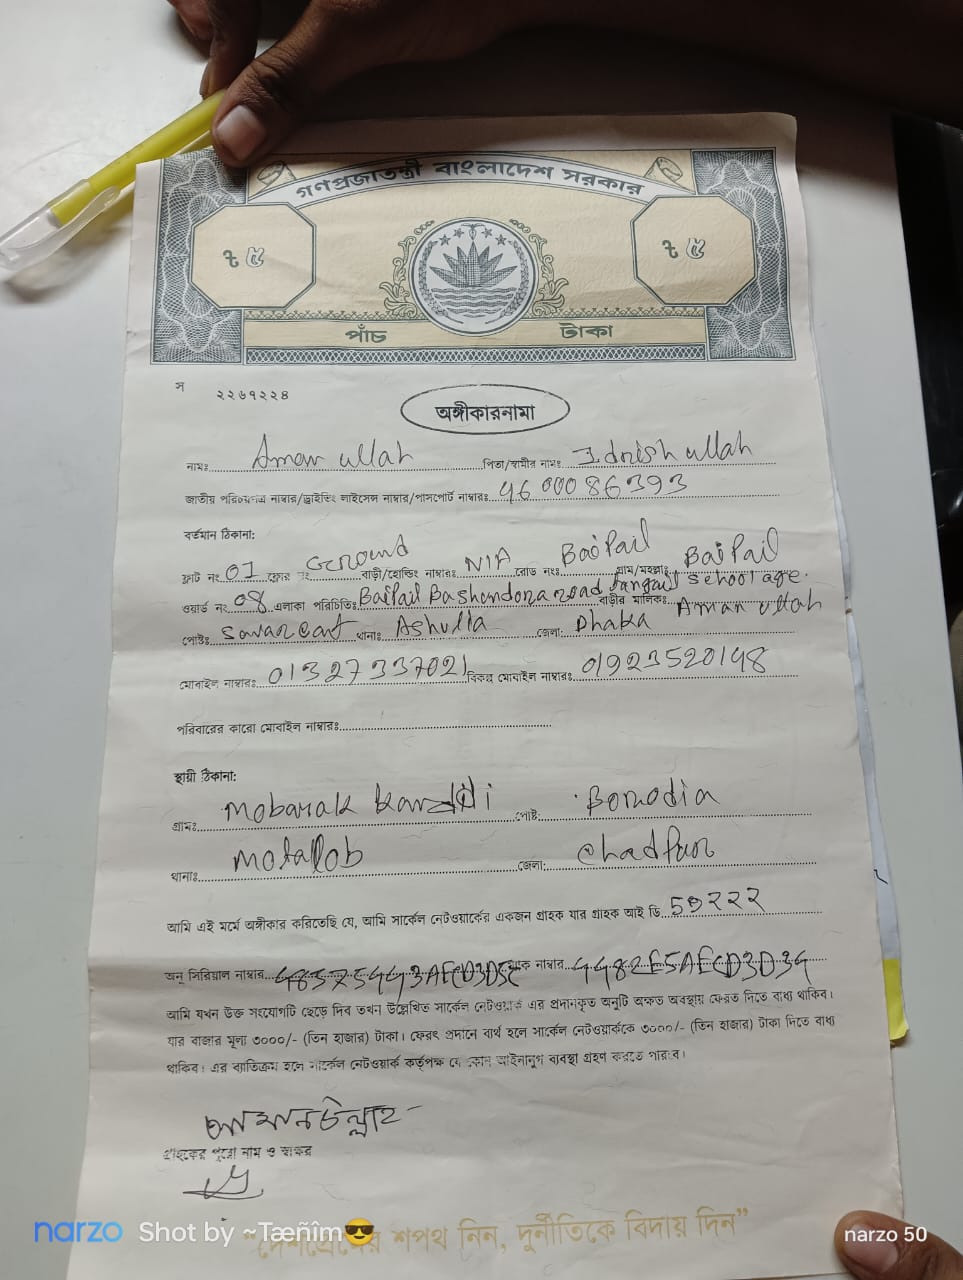 গণপ্রজাতন্ত্রী বাংলাদেশ সরকার
৳ ৫ ৳ ৫
পাঁচ টাকা
স ২২৬৭২২৪
অঙ্গীকারনামা
নামঃ Aman ullah পিতা/স্বামীর নামঃ Idrish ullah
জাতীয় পরিচয়পত্র নাম্বার/ড্রাইভিং লাইসেন্স নাম্বার/পাসপোর্ট নাম্বারঃ 4600086393
বর্তমান ঠিকানা:
ফ্লাট নং 01 ফ্লোর নং Ground বাড়ী/হোল্ডিং নাম্বারঃ N/A রোড নংঃ Baipail গ্রাম/মহল্লাঃ Baipail
ওয়ার্ড নং 08 এলাকা পরিচিতিঃ Baipail Bashundora road school বাড়ীর মালিকঃ Aman ullah
পোষ্টঃ Savar cant থানাঃ Ashulia জেলা: Dhaka
মোবাইল নাম্বারঃ 01327337021 বিকল্প মোবাইল নাম্বারঃ 01923520148
পরিবারের কারো মোবাইল নাম্বারঃ
স্থায়ী ঠিকানা:
গ্রামঃ Mobarak পোষ্ট:
থানাঃ Motalob জেলা: Chadpur
আমি এই মর্মে অঙ্গীকার করিতেছি যে, আমি সার্কেল নেটওয়ার্কের একজন গ্রাহক যার গ্রাহক আই ডি
অনু সিরিয়াল নাম্বার ম্যাক নাম্বার
আমি যখন উক্ত সংযোগটি ছেড়ে দিব তখন উল্লেখিত সার্কেল নেটওয়ার্ক এর প্রদানকৃত অনুটি অক্ষত অবস্থায় ফেরত দিতে বাধ্য থাকিব।
যার বাজার মূল্য ৩০০০/- (তিন হাজার) টাকা। ফেরৎ প্রদানে ব্যর্থ হলে সার্কেল নেটওয়ার্ককে ৩০০০/- (তিন হাজার) টাকা দিতে বাধ্য
থাকিব। এর ব্যতিক্রম হলে সার্কেল নেটওয়ার্ক কর্তৃপক্ষ যে কোন আইনানুগ ব্যবস্থা গ্রহণ করতে পারবে।
আমানউল্লাহ
গ্রাহকের পুরো নাম ও স্বাক্ষর
"দেশপ্রেমের শপথ নিন, দুর্নীতিকে বিদায় দিন"
narzo Shot by ~Tæñîm😎 narzo 50